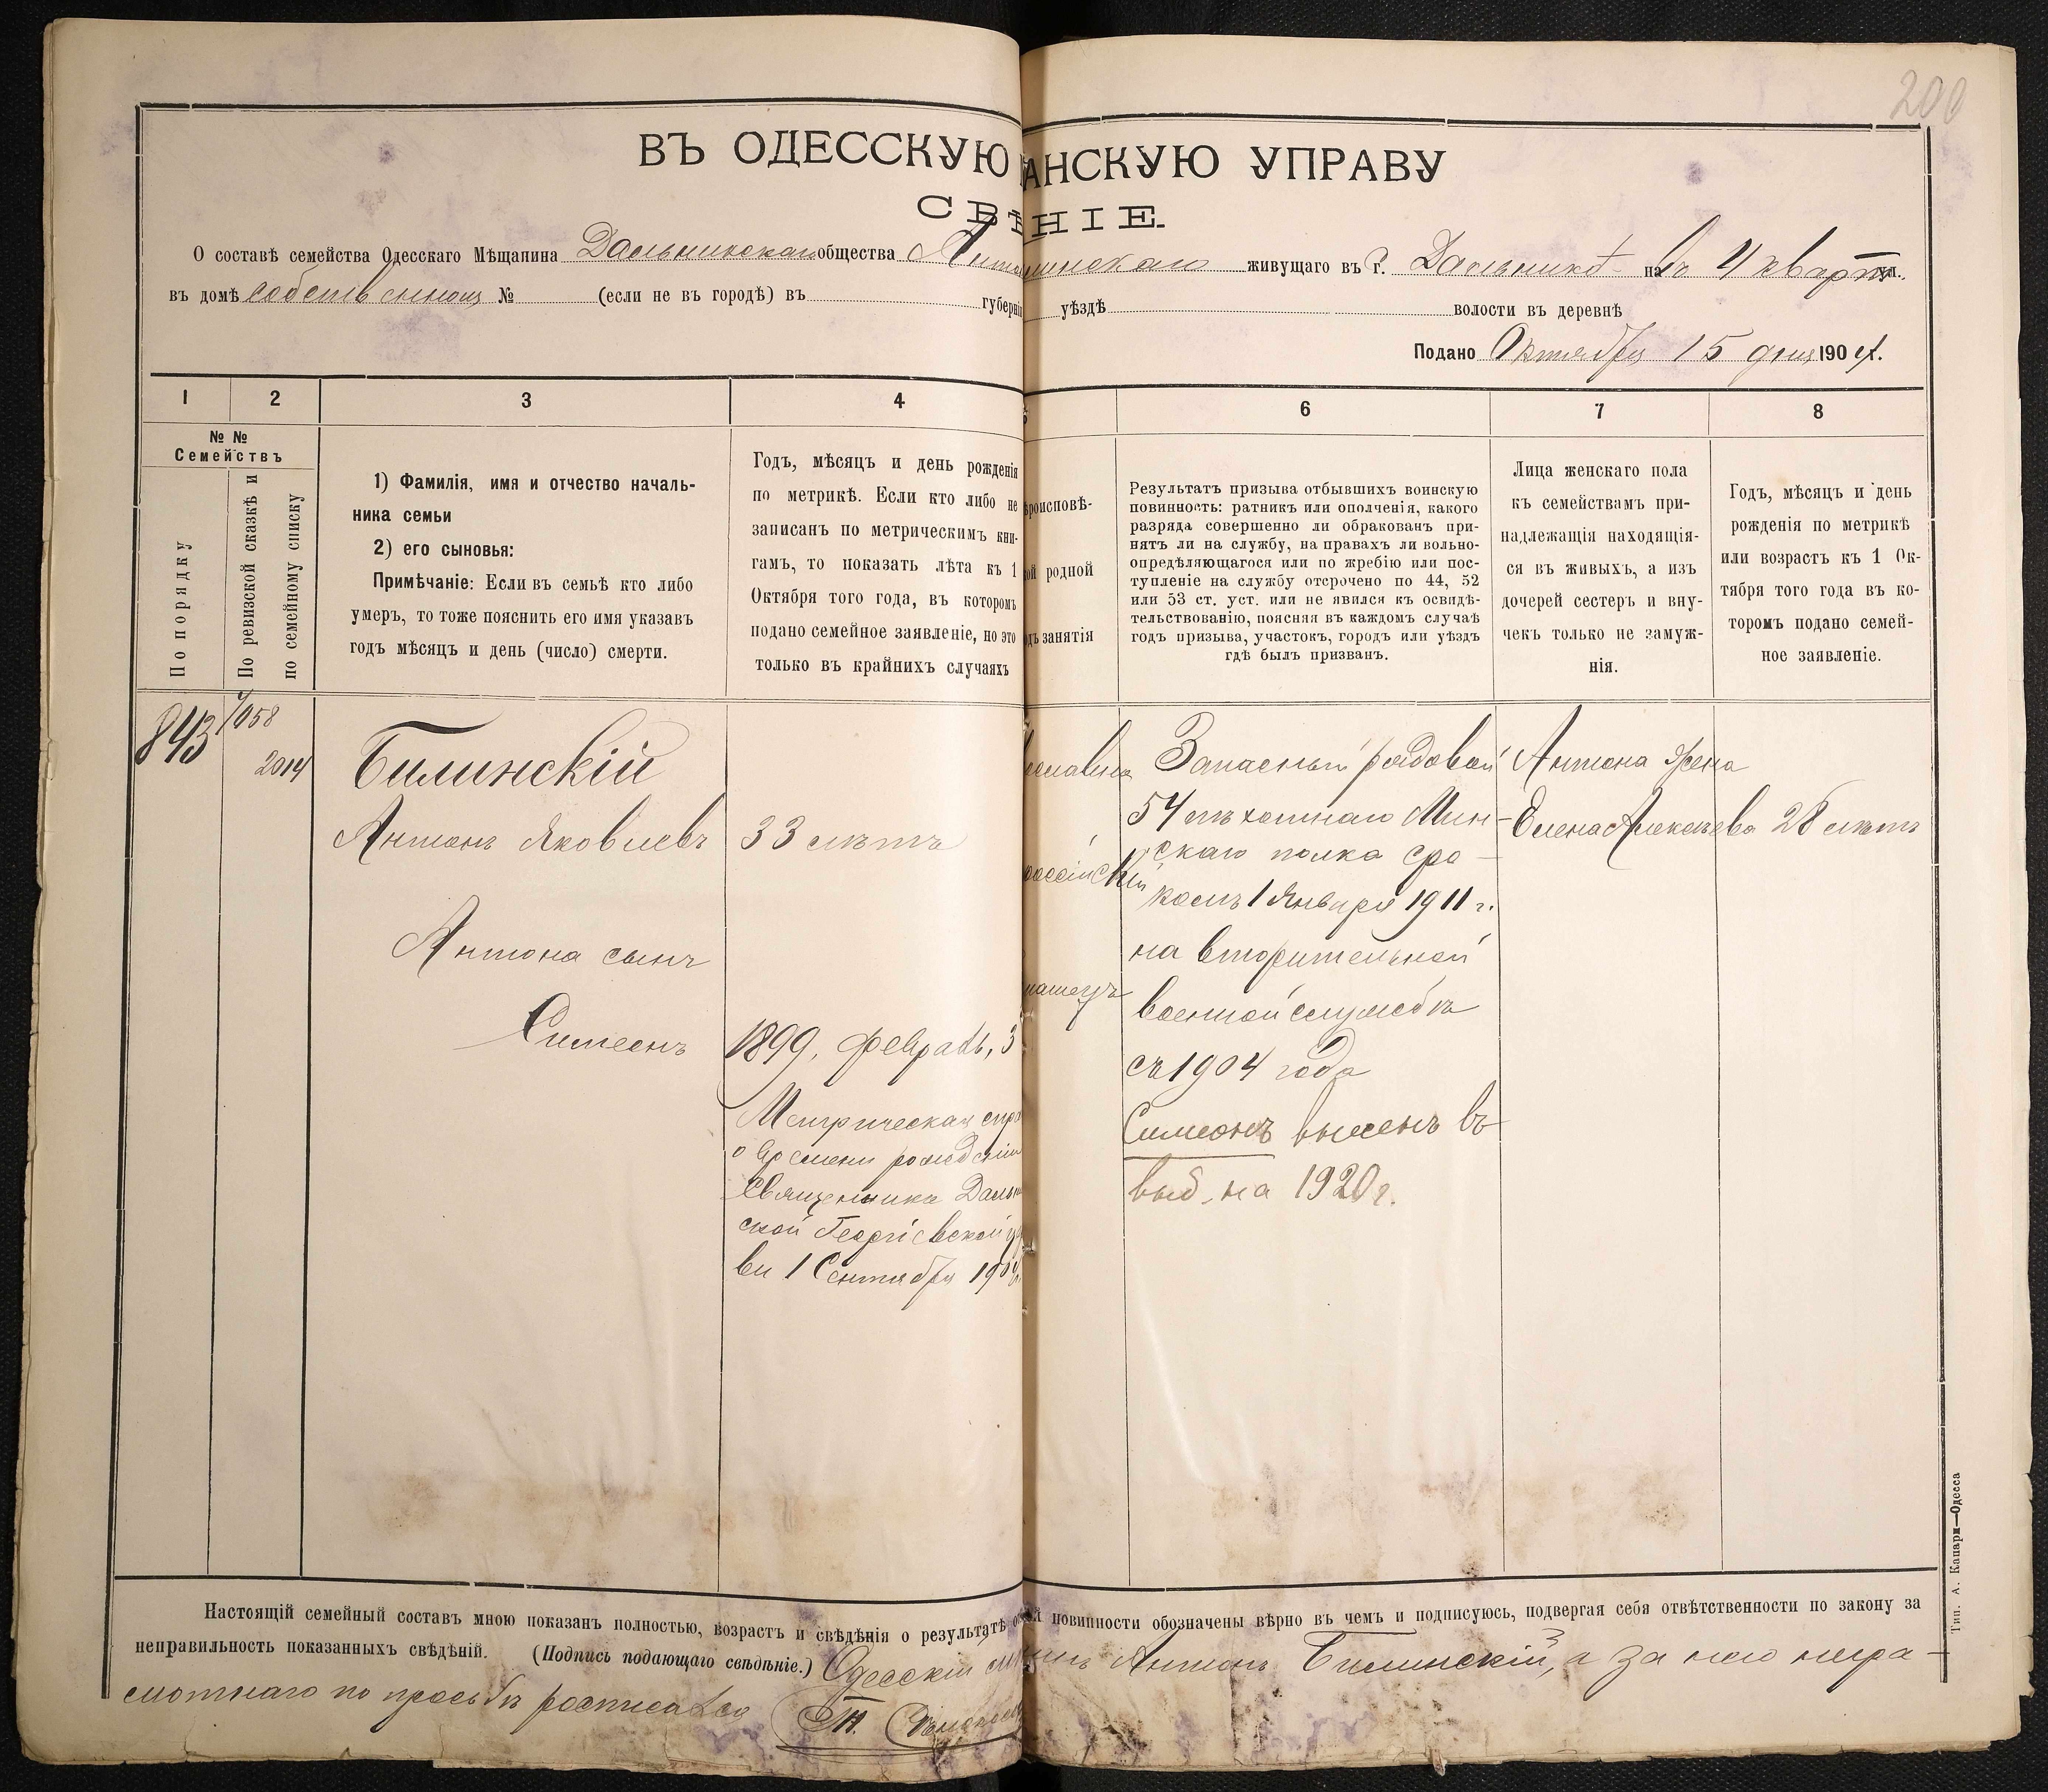 200
ВЪ ОДЕССКУЮ АНСКУЮ УПРАВУ
СВѢНІЕ.
О составѣ семейства Одесскаго Мѣщанина Дальницкаго общества живущаго въ г. Дальникѣ на въ 4 кварт. ул.
въ домѣ собственномъ № (если не въ городѣ) въ губерніи уѣздѣ волости въ деревнѣ
Подано Октября 15 дня 1904 г.
1 2 3 4 5 6 7 8
№ №
Семействъ
По порядку
По ревизской сказкѣ и
по семейному списку
1) Фамилія, имя и отчество началь-
ника семьи
2) его сыновья:
Примѣчаніе: Если въ семьѣ кто либо
умеръ, то тоже пояснить его имя указавъ
годъ мѣсяцъ и день (число) смерти.
Годъ, мѣсяцъ и день рожденія
по метрикѣ. Если кто либо не
записанъ по метрическимъ кни-
гамъ, то показать лѣта къ 1
Октября того года, въ которомъ
подано семейное заявленіе, но это
только въ крайнихъ случаяхъ
ѣроисповѣ-
кой родной
одъ занятія
Результатъ призыва отбывшихъ воинскую
повинность: ратникъ или ополченія, какого
разряда совершенно ли обракованъ при-
нятъ ли на службу, на правахъ ли вольно-
опредѣляющагося или по жребію или пос-
тупленіе на службу отсрочено по 44, 52
или 53 ст. уст. или не явился къ освидѣ-
тельствованію, поясняя въ каждомъ случаѣ
годъ призыва, участокъ, городъ или уѣздъ
гдѣ былъ призванъ.
Лица женскаго пола
къ семействамъ при-
надлежащія находящія-
ся въ живыхъ, а изъ
дочерей сестеръ и вну-
чекъ только не замуж-
нія.
Годъ, мѣсяцъ и день
рожденія по метрикѣ
или возрастъ къ 1 Ок-
тября того года въ ко-
торомъ подано семей-
ное заявленіе.
843
1058
2014
Билинскій
Антонъ Яковлевъ
33 лѣтъ
Антона сынъ
Симеонъ
1899, февраль, 3
Метрическая спр
о времени рожденія
Священника Дальн
ской Георгіевской ц
ви 1 Сентября 190
ославна
россійскій
пашецъ
Запасный рядовой
54 пѣхотнаго Мин-
скаго полка сро-
комъ 1 Января 1911 г.
на вторительной
военной службѣ
съ 1904 года
Симеонъ внесенъ въ
выб. на 1920 г.
Антона жена
Елена Алексѣева 28 лѣтъ
Настоящій семейный составъ мною показанъ полностью, возрастъ и свѣдѣнія о результатѣ о й повинности обозначены вѣрно въ чемъ и подписуюсь, подвергая себя отвѣтственности по закону за
неправильность показанныхъ свѣдѣній. (Подпись подающаго свѣдѣніе.) Одесскій мѣ нинъ Антонъ Билинскій, а за него негра-
мотнаго по просьбѣ росписался
Тип. А. Капари—Одесса